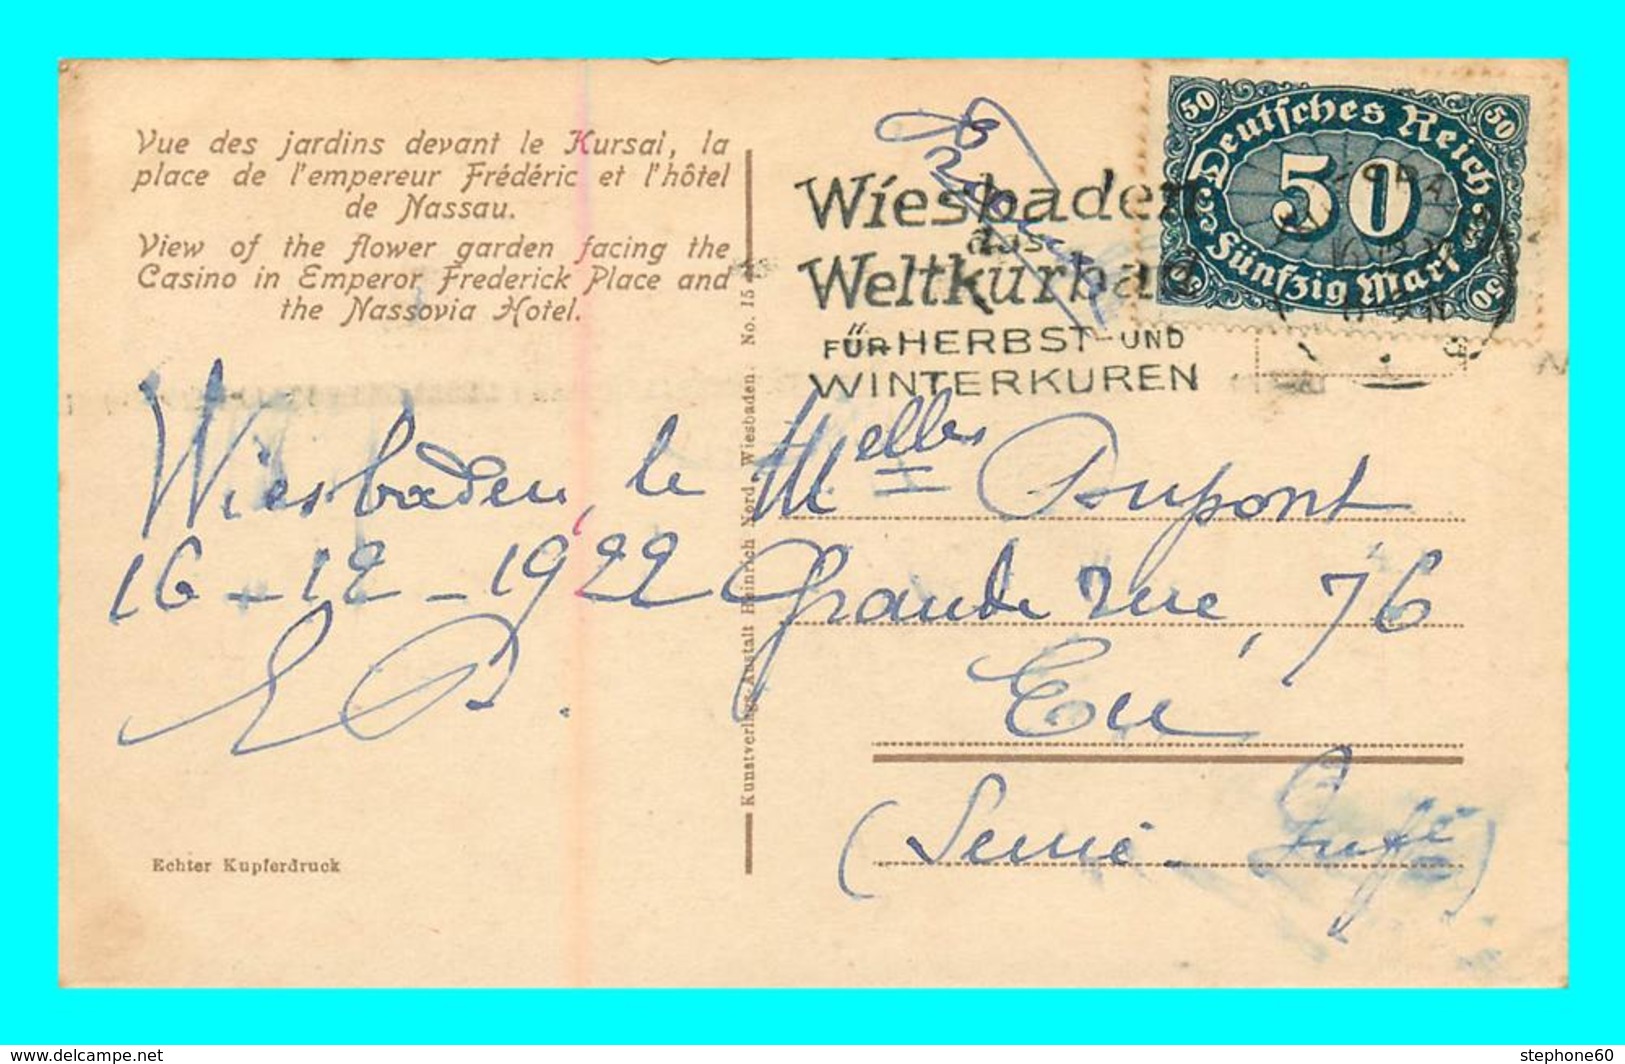 Vue des jardins devant le Kursal, la
place de l'empereur Frédéric et l'hôtel
de Nassau.
View of the flower garden facing the
Casino in Emperor Frederick Place and
the Nassovia Hotel.
Wiesbaden, le
16-12-1922
E D.
Echter Kupferdruck
Kunstverlags-Anstalt Heinrich Nord, Wiesbaden. No. 15
Wiesbaden
das
Weltkurbad
FÜR HERBST- UND
WINTERKUREN
50 50
Deutsches Reich
50
Fünfzig Mark
50 50
Melles Dupont
Grande rue, 76
Eu
(Seine-Infre)
www.delcampe.net
stephone60